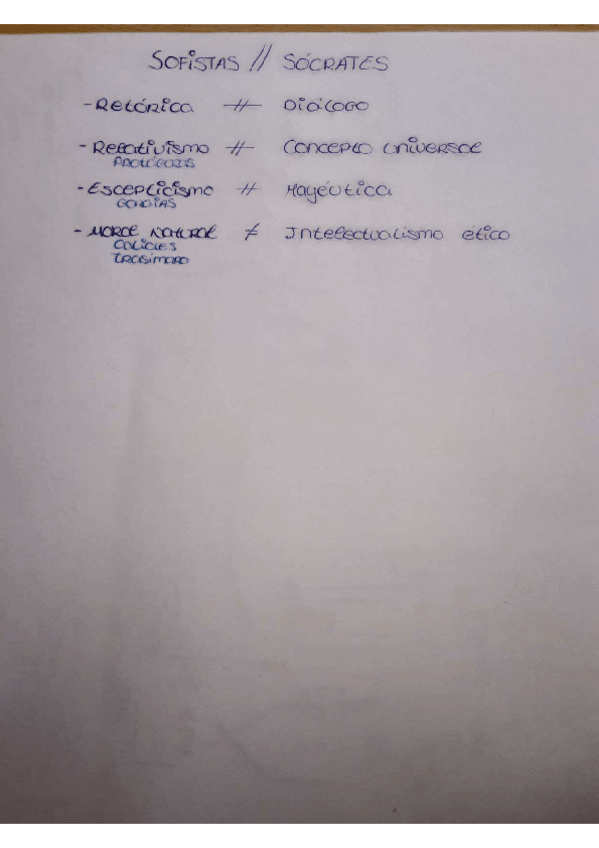 SOFISTAS // SÓCRATES
- Retórica ≠ Diálogo
- Relativismo ≠ Concepto universal
PROTÁGORAS
- Escepticismo ≠ Mayéutica
GORGIAS
- MORAL NATURAL ≠ Intelectualismo ético
CALICLES
TRASÍMACO